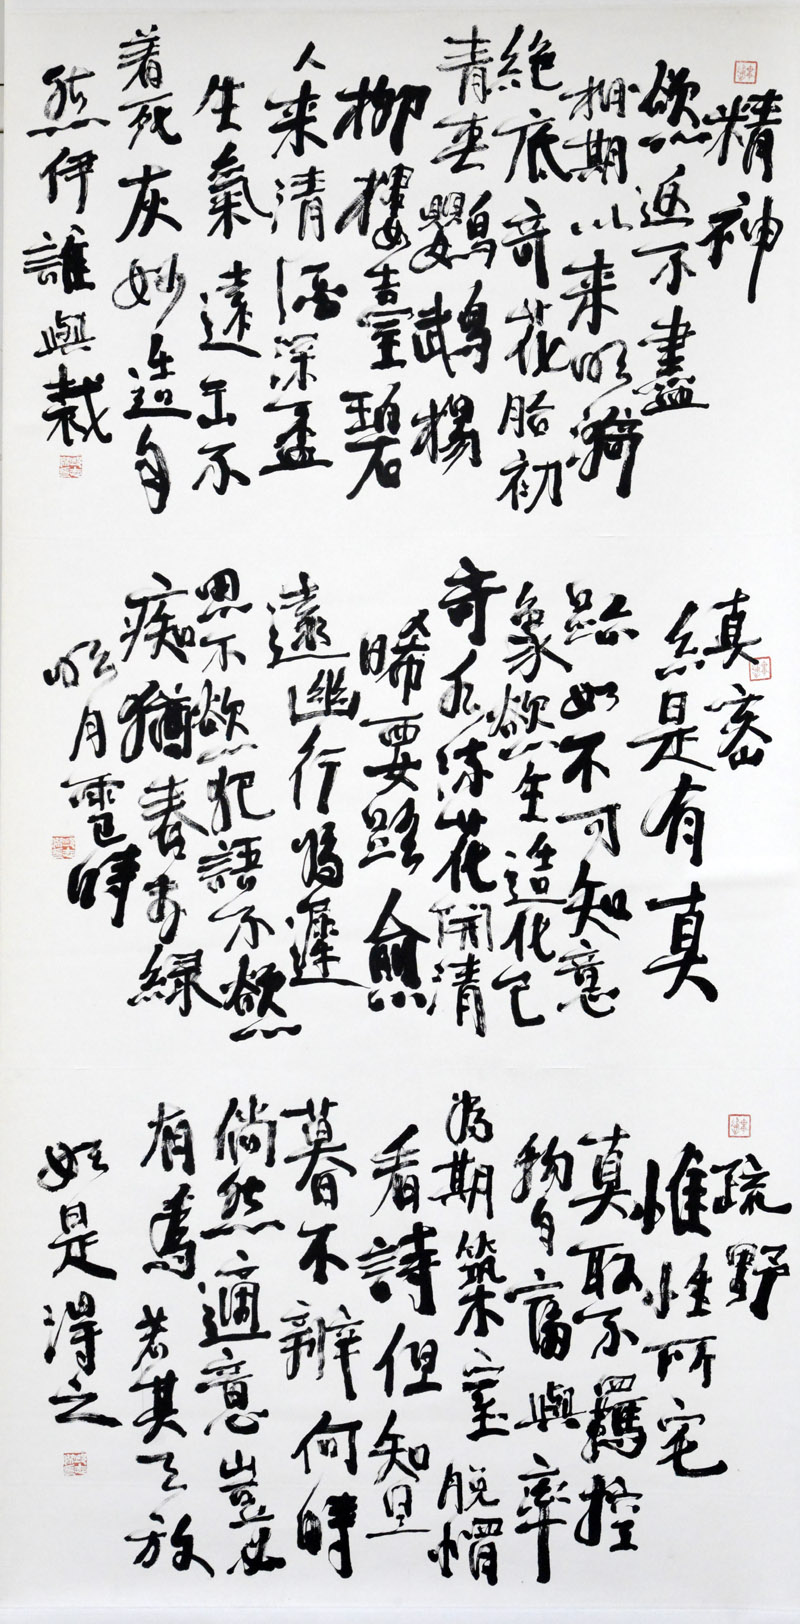 精神
欲返不盡
相期以來明漪
絕底奇花胎初
青春鸚鵡楊
柳樓臺碧
人來清酒深盃
生氣遠出不
着死灰妙造自
然伊誰與裁
真密
是有真
跡如不可知意
象欲生造化已
奇水流花開清
晞要路愈
遠幽行為遲
思不欲犯語不欲
痴猶春於綠
明月雪時
疏野
惟性所宅
真取不羈控
物自富與率
為期築室脫帽
看詩但知旦
暮不辨何時
倘然適意豈必
有為若其天放
如是得之